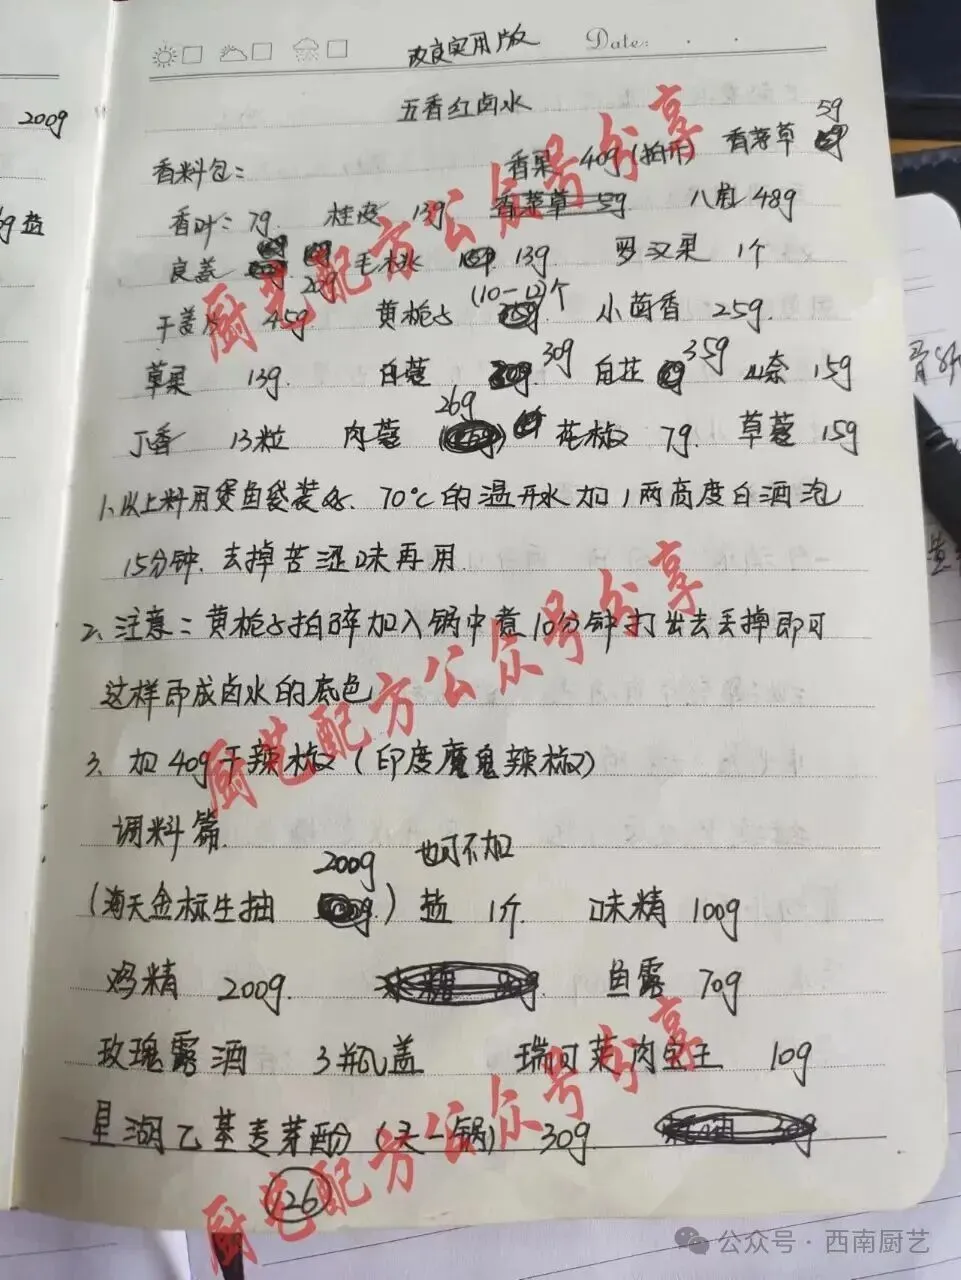 改良实用版 Date:
五香红卤水
200g
5g
香料包: 香果 40g (拍开) 香茅草
香叶: 7g 桂皮 13g 香茅草 5g 八角 48g
g盐
良姜 20g 毛桃 13g 罗汉果 1个
(10-12)个
干姜片 45g 黄栀子 小茴香 25g.
草果 13g. 白蔻 30g 白芷 35g 山奈 15g
26g
丁香 13粒 肉蔻 花椒 7g. 草蔻 15g
1、以上料用煲鱼袋装好. 70℃的温开水加1两高度白酒泡
15分钟. 去掉苦涩味再用.
2、注意: 黄栀子拍碎加入锅中煮10分钟打出去丢掉即可
这样即成卤水的底色
3、加40g干辣椒 (印度魔鬼辣椒)
调料篇.
200g 也可不加
(海天金标生抽 ) 盐 1斤 味精 100g
鸡精 200g. 鱼露 70g
玫瑰露酒 3瓶盖 瑞可莱肉宝王 10g
星湖乙基麦芽酚 (头一锅) 30g
26
厨艺配方公众号分享
厨艺配方公众号分享
厨艺配方公众号分享
公众号·西南厨艺